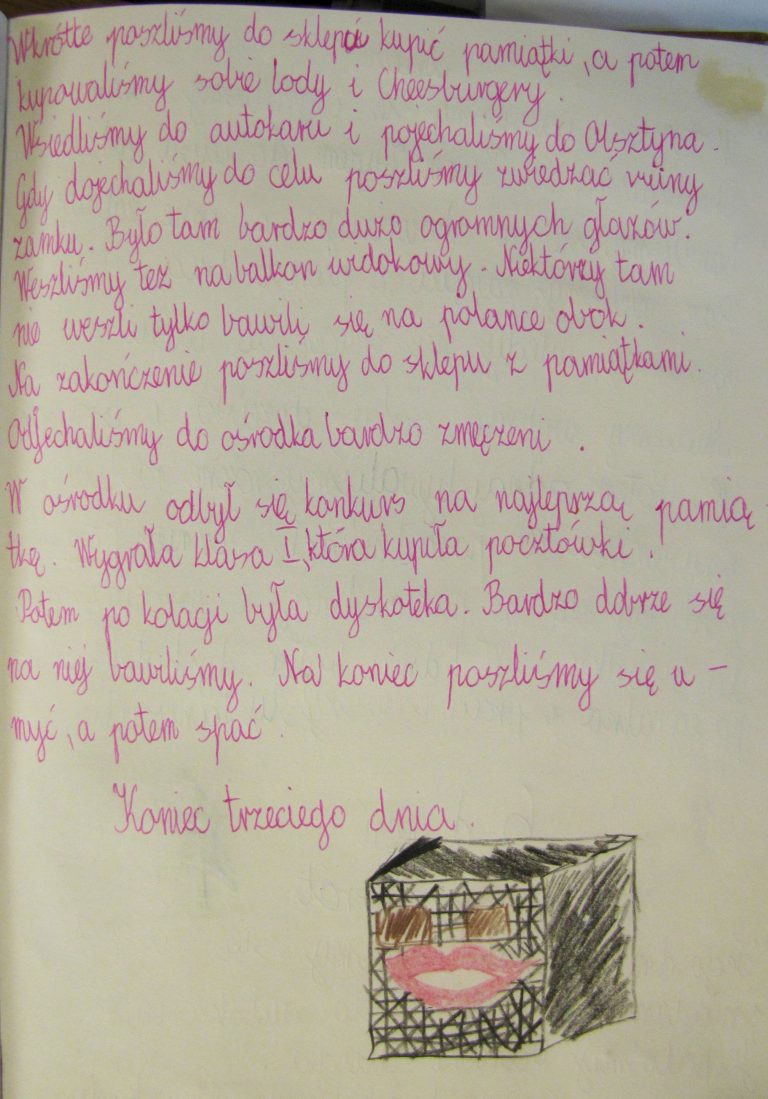 Wkrótce poszliśmy do sklepu kupić pamiątki, a potem
kupowaliśmy sobie lody i Cheesburgery.
Wsiedliśmy do autokaru i pojechaliśmy do Olsztyna.
Gdy dojechaliśmy do celu poszliśmy zwiedzać ruiny
zamku. Było tam bardzo dużo ogromnych głazów.
Weszliśmy też na balkon widokowy. Niektórzy tam
nie weszli tylko bawili się na polance obok.
Na zakończenie poszliśmy do sklepu z pamiątkami.
Odjechaliśmy do ośrodka bardzo zmęczeni.
W ośrodku odbył się konkurs na najleprzą pamią-
tkę. Wygrała klasa I, która kupiła pocztówki.
Potem po kolacji była dyskoteka. Bardzo dobrze się
na niej bawiliśmy. Na koniec poszliśmy się u-
myć, a potem spać.
Koniec trzeciego dnia.